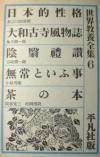 日本的性格
大和古寺風物誌
陰翳禮讃
無常といふ事
茶の本
世界教養全集6
平凡社